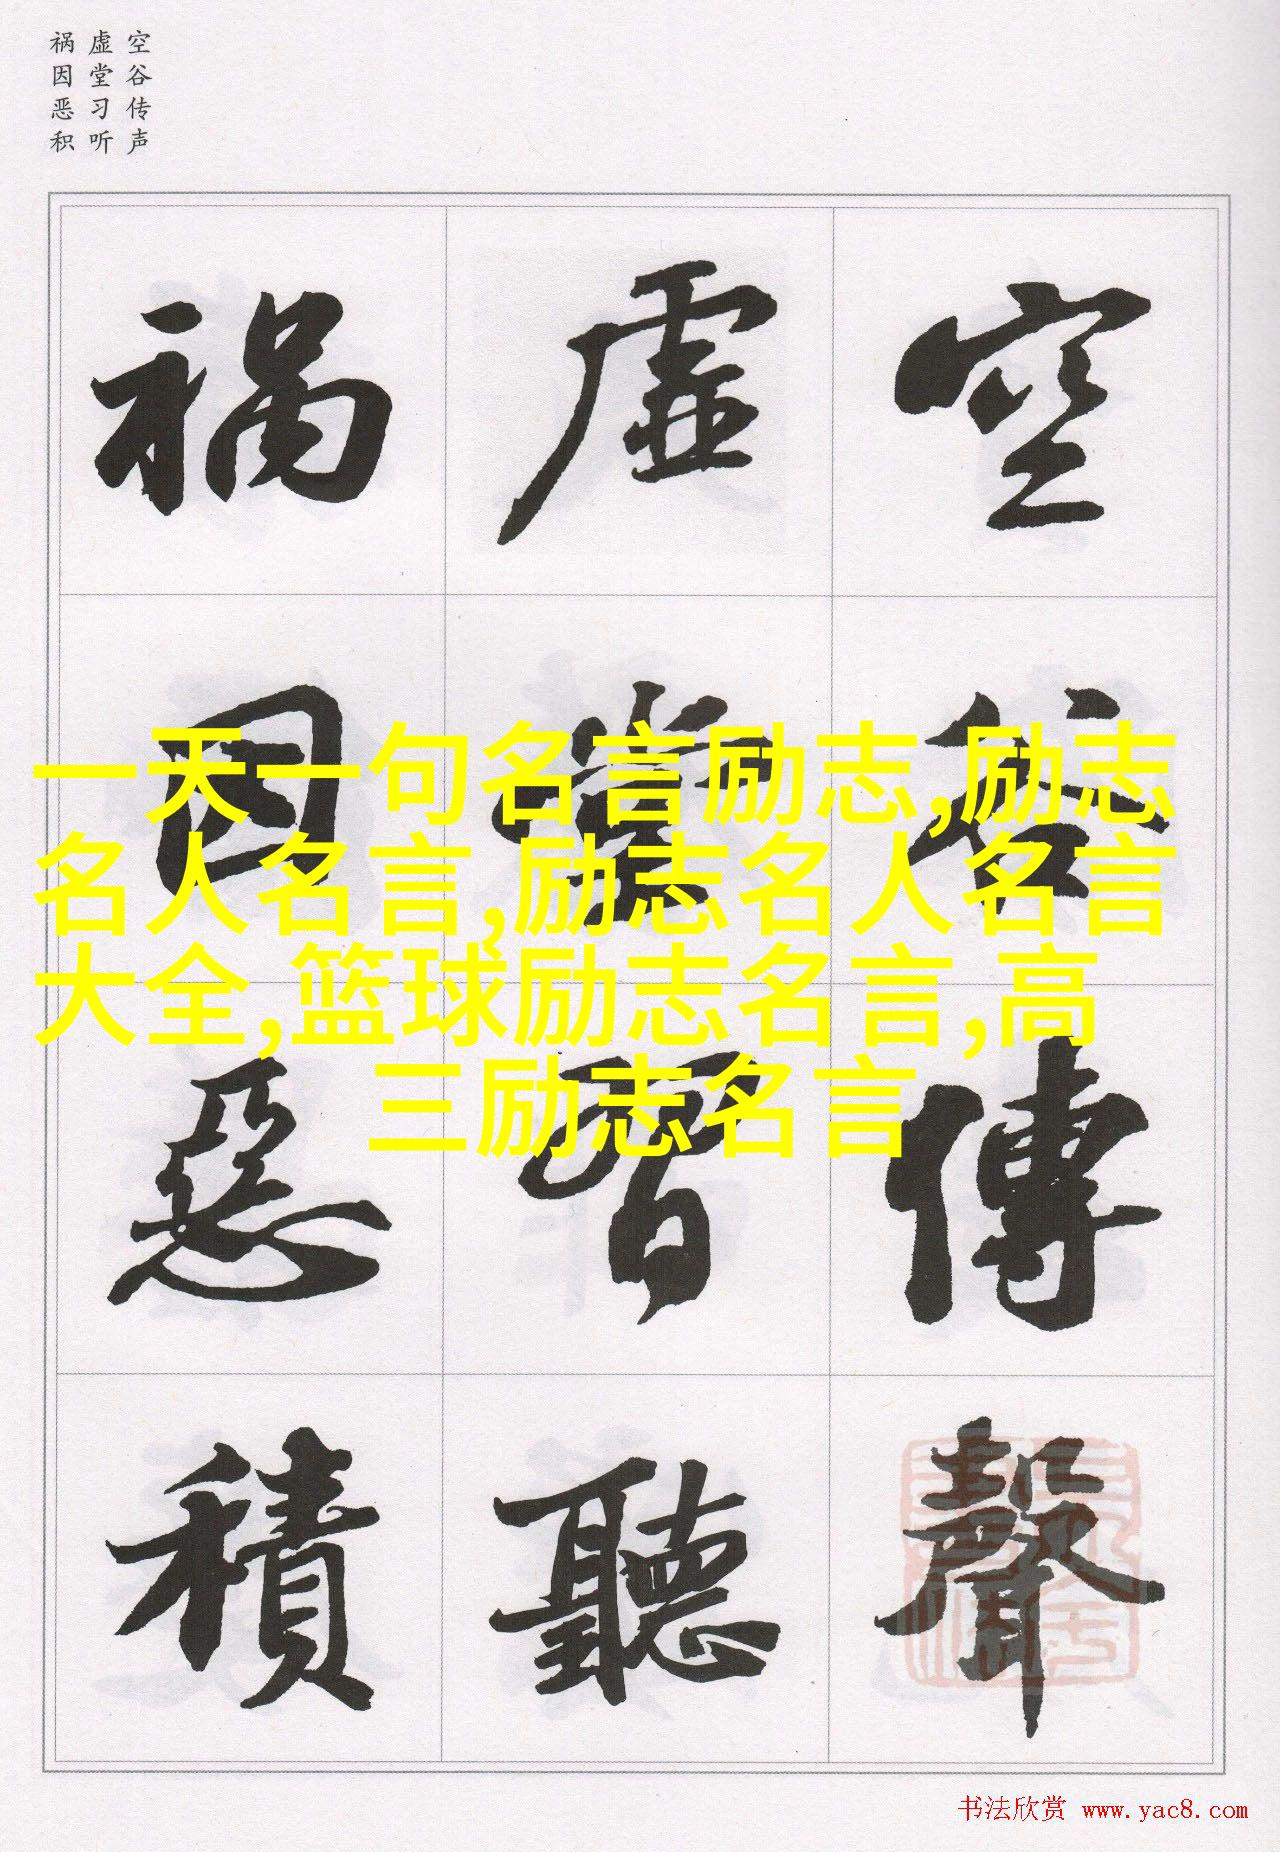 空谷传声
虚堂习听
祸因恶积
空谷傳聲
虚堂習聽
禍因惡積
一天一句名言励志,励志
名人名言,励志名人名言
大全,篮球励志名言,高
三励志名言
书法欣赏 www.yac8.com